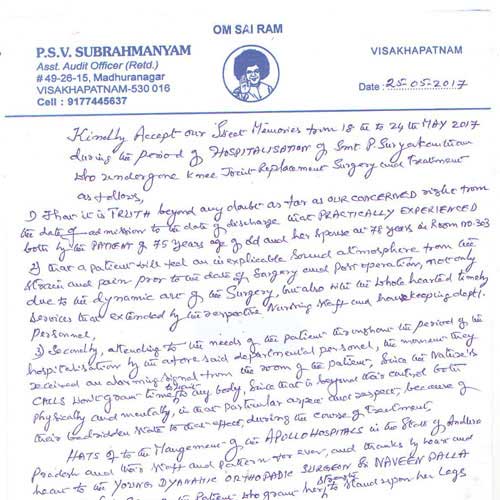 OM SAI RAM
P.S.V. SUBRAHMANYAM
Asst. Audit Officer (Retd.)
# 49-26-15, Madhuranagar
VISAKHAPATNAM-530 016
Cell : 9177445637
VISAKHAPATNAM
Date : 25-05-2017
Kindly Accept our Sweet Memories from 18th to 24th MAY 2017
during the period of HOSPITALISATION of Smt P. Suryakantham
who undergone Knee Joint Replacement Surgery and Treatment
as follows,
1) That it is TRUTH beyond any doubt as far as OUR CONCERNED right from
the date of admission to the date of discharge that PRACTICALLY EXPERIENCED
both by the PATIENT of 75 years age of old and her spouse at 78 years in Room no. 303
2) that a patient will feel an inexplicable sound atmosphere from the
strain and pain prior to the date of Surgery and post operation, not only
due to the dynamic art of the Surgery, but also with the whole hearted timely
services that extended by the respective Nursing staff and house keeping dept.
Personnel,
3) Secondly, attending to the needs of the patient throughout the period of the
hospitalisation by the afore said departmental personnel, the moment they
received an alarming signal from the room of the patient, Since the Nature's
CALLS won't grant time to any body, Since that is beyond their control both
physically and mentally, in that particular aspect and respect, because of
their bedridden state to that effect, during the course of treatment,
HATS of to the Mangement of the APOLLO HOSPITALS in the State of Andhra
Pradesh and their staff and Pattern for ever, and thanks by hear and
heart to the YOUNG DYANAMIC ORTHOPADIC SURGEON Dr NAVEEN PALLA
the Patient who strength her, to stand upon her Legs